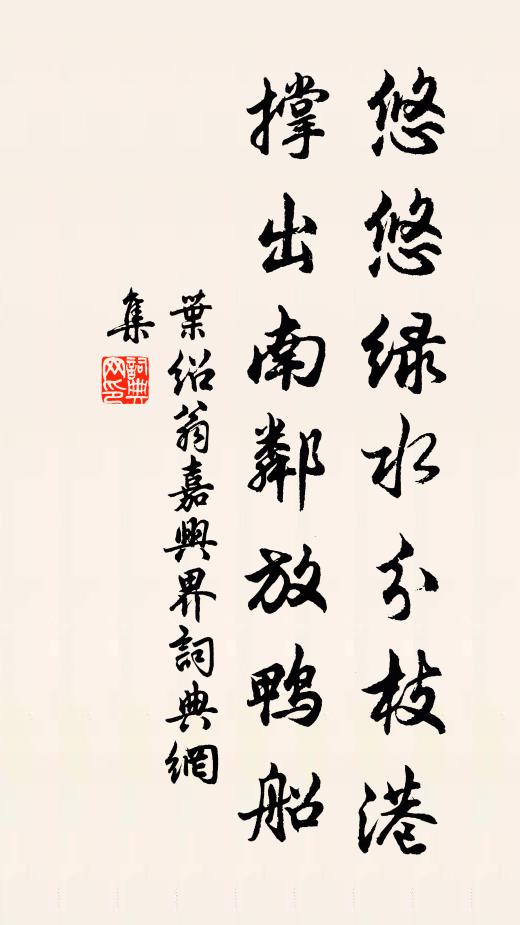 悠悠绿水分枝港
撑出南鄰放鴨船
葉绍翁嘉興界詞典網
集
詞典网印